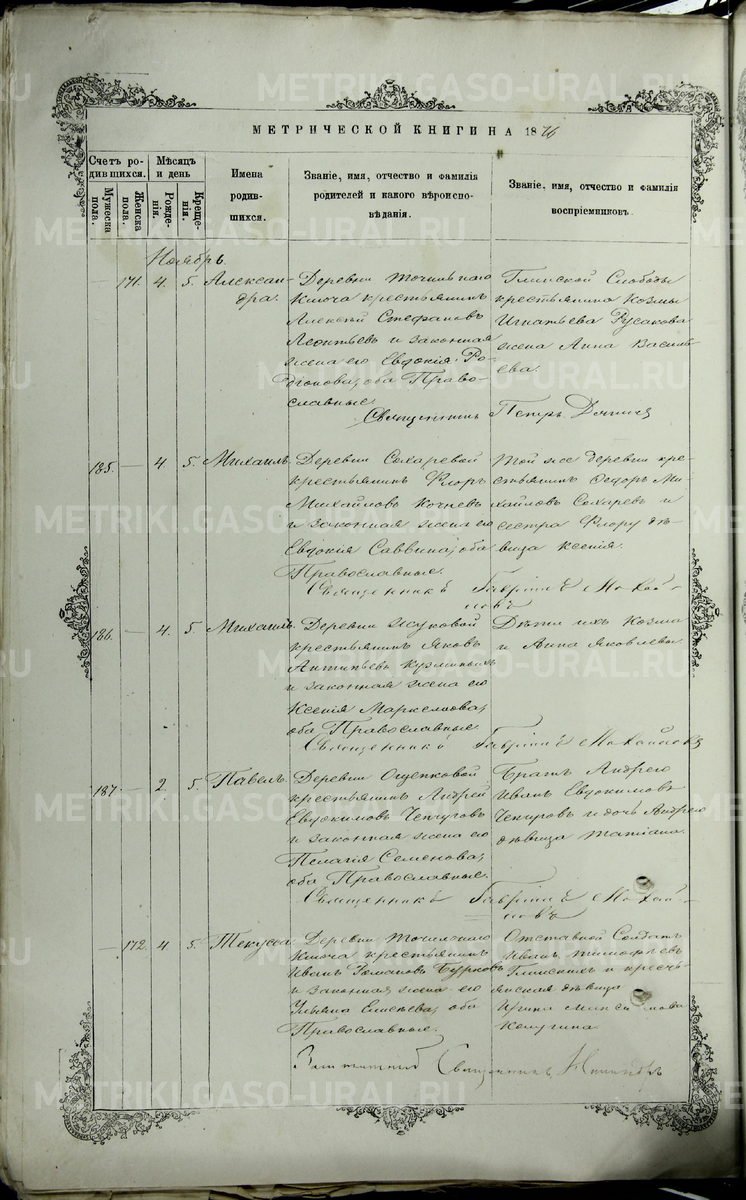 METRIKI.GASO-URAL.RU
МЕТРИЧЕСКОЙ КНИГИ НА 1876
Счетъ родившихся.
Мужеска пола.
Женска пола.
Мѣсяцъ и день
Рожденія.
Крещенія.
Имена родившихся.
Званіе, имя, отчество и фамилія родителей и какого вѣроисповѣданія.
Званіе, имя, отчество и фамилія воспріемниковъ.
Ноябрь.
171. 4. 5. Александра.
Деревни Точильнаго
Ключа крестьянинъ
Алексѣй Стефановъ
Леонтьевъ и законная
жена его Евдокія Родіонова, оба Православные.
Глинской Слободы
крестьянина Козмы
Игнатьева Русакова
жена Анна Васильева.
Священникъ Петръ
185. 4. 5. Михаилъ.
Деревни Сохаревой
крестьянинъ Флоръ
Михайловъ Кочневъ
и законная жена его
Евдокія Саввина, оба
Православные.
Той же деревни крестьянинъ Ѳедоръ Михайловъ Сохаревъ и
сестра Флору дѣвица Ксенія.
Священникъ Гавріилъ
186. 4. 5. Михаилъ.
Деревни Жуковой
крестьянинъ Яковъ
Антипьевъ Кузминыхъ
и законная жена его
Ксенія Маркелова,
оба Православные.
Дѣти ихъ Козма
и Анна Яковлевы.
Священникъ Гавріилъ
187. 2. 5. Павелъ.
Деревни Ощепковой
крестьянинъ Андрей
Евдокимовъ Чепчуговъ
и законная жена его
Пелагія Семенова,
оба Православные.
Братъ Андрею
Иванъ Евдокимовъ
и дочь Андрею
дѣвица Татіана.
Священникъ Гавріилъ
172. 4. 5. Текусса.
Деревни Точильнаго
Ключа крестьянинъ
Иванъ Романовъ Бурковъ
и законная жена его
Ульяна Елисѣева, оба
Православные.
Отставной Солдатъ
Иванъ Тимофѣевъ
Глинскихъ и крестьянская дѣвица
Ирина Максимова
Заштатный Священникъ